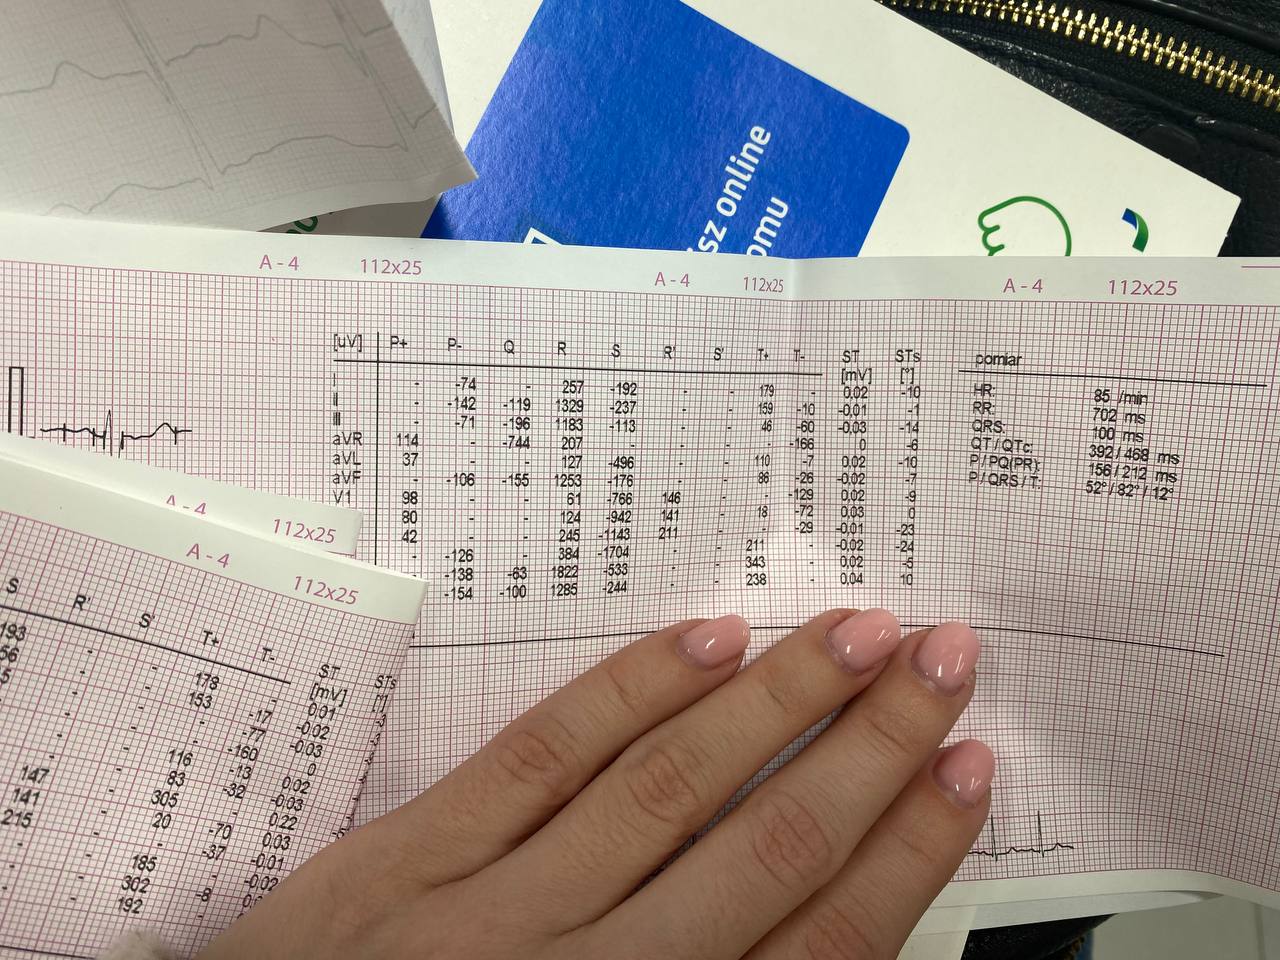 sz online
omu
A - 4 112x25 A - 4 112x25 A - 4 112x25
[uV] P+ P- Q R S R' S' T+ T- ST STs pomiar
[mV] [°]
I - -74 - 257 -192 - - 179 - 0,02 -10 HR: 85 /min
II - -142 -119 1329 -237 - - 159 -10 -0,01 -1 RR: 702 ms
III - -71 -196 1183 -113 - - 46 -60 -0,03 -14 QRS: 100 ms
aVR 114 - -744 207 - - - - -166 0 -6 QT / QTc: 392 / 468 ms
aVL 37 - - 127 -496 - - 110 -7 0,02 -10 P / PQ(PR): 156 / 212 ms
aVF - -106 -155 1253 -176 - - 86 -26 -0,02 -7 P / QRS / T: 52° / 82° / 12°
V1 98 - - 61 -766 146 - - -129 0,02 -9
80 - - 124 -942 141 - 18 -72 0,03 0
42 - - 245 -1143 211 - - -29 -0,01 -23
- -126 - 384 -1704 - - 211 - -0,02 -24
- -138 -63 1822 -533 - - 343 - 0,02 -5
-154 -100 1285 -244 - - 238 - 0,04 10
A - 4 112x25
A - 4 112x25
S R' S' T+ T- ST STs
[mV]
193 - - 178 - 0,01
56 - - 153 -17 -0,02
5 - - - -77 -0,03
- - - -160 0
- - 116 -13 0,02
- - 83 -32 -0,03
147 - 305 - 0,22
141 - 20 -70 0,03
215 - - -37 -0,01
- - 185 - -0,02
- - 302 -8
- - 192 -